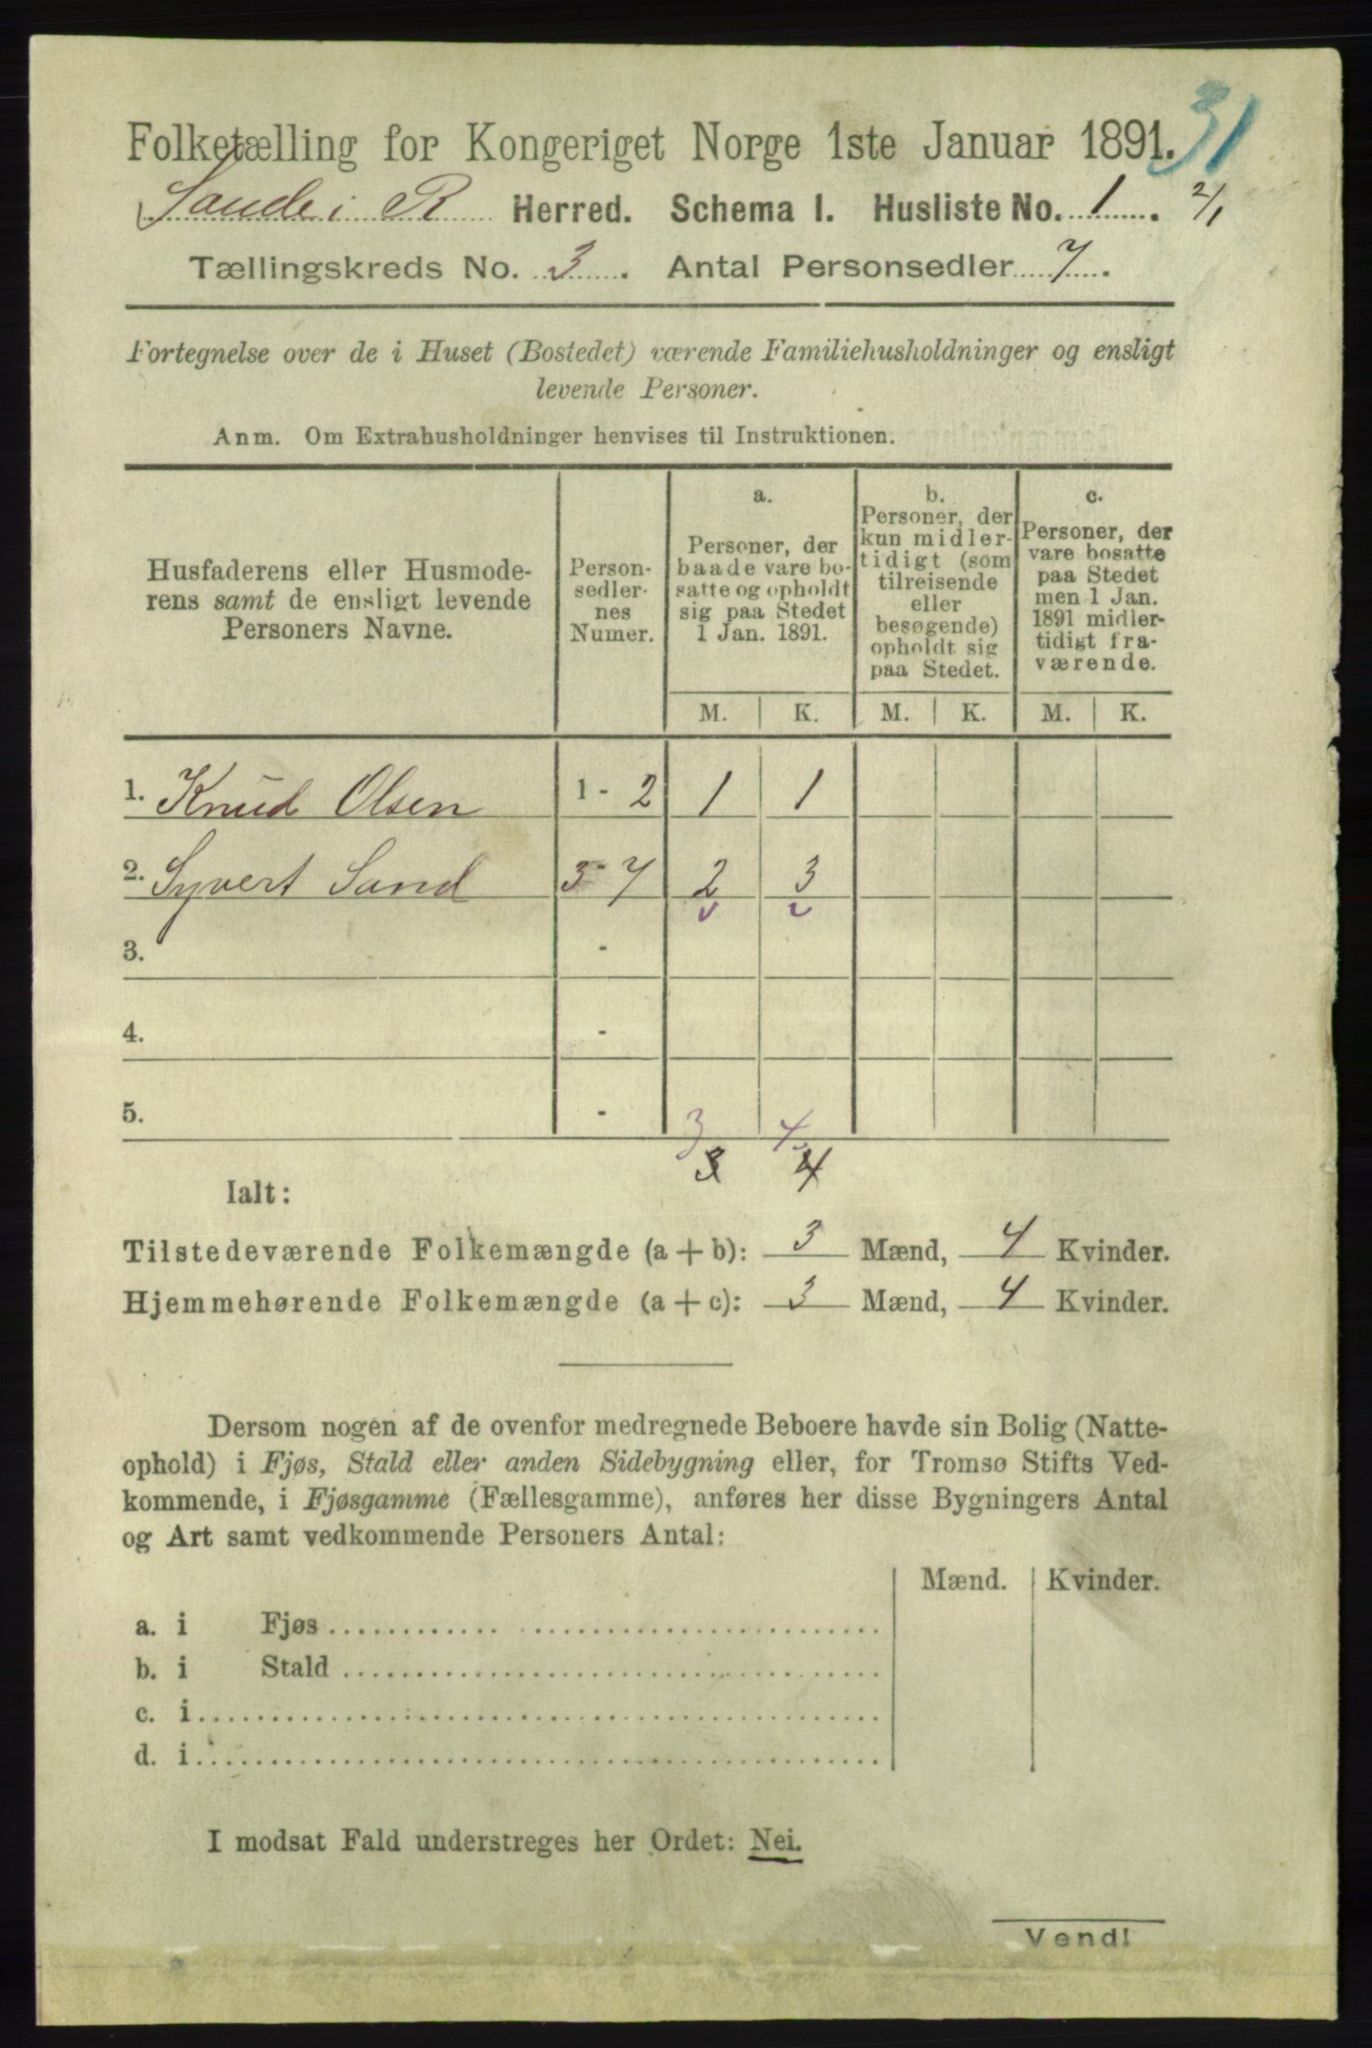 31
Folketælling for Kongeriget Norge 1ste Januar 1891.
Sande i R Herred. Schema I. Husliste No. 1. 2/1
Tællingskreds No. 3. Antal Personsedler 7.
Fortegnelse over de i Huset (Bostedet) værende Familiehusholdninger og ensligt
levende Personer.
Anm. Om Extrahusholdninger henvises til Instruktionen.
Husfaderens eller Husmode-
rens samt de ensligt levende
Personers Navne.
Person-
sedler-
nes
Numer.
a.
Personer, der
baade vare bo-
satte og opholdt
sig paa Stedet
1 Jan. 1891.
b.
Personer, der
kun midler-
tidigt (som
tilreisende
eller
besøgende)
opholdt sig
paa Stedet.
c.
Personer, der
vare bosatte
paa Stedet
men 1 Jan.
1891 midler-
tidigt fra-
værende.
M. K. M. K. M. K.
1. Knud Olsen 1 - 2 1 1
2. Syvert Sand 3 - 7 2 3
3. -
4. -
5. -
3 4
3 4
Ialt:
Tilstedeværende Folkemængde (a + b): 3 Mænd, 4 Kvinder.
Hjemmehørende Folkemængde (a + c): 3 Mænd, 4 Kvinder.
Dersom nogen af de ovenfor medregnede Beboere havde sin Bolig (Natte-
ophold) i Fjøs, Stald eller anden Sidebygning eller, for Tromsø Stifts Ved-
kommende, i Fjøsgamme (Fællesgamme), anføres her disse Bygningers Antal
og Art samt vedkommende Personers Antal:
Mænd. Kvinder.
a. i Fjøs
b. i Stald
c. i
d. i
I modsat Fald understreges her Ordet: Nei.
Vend!